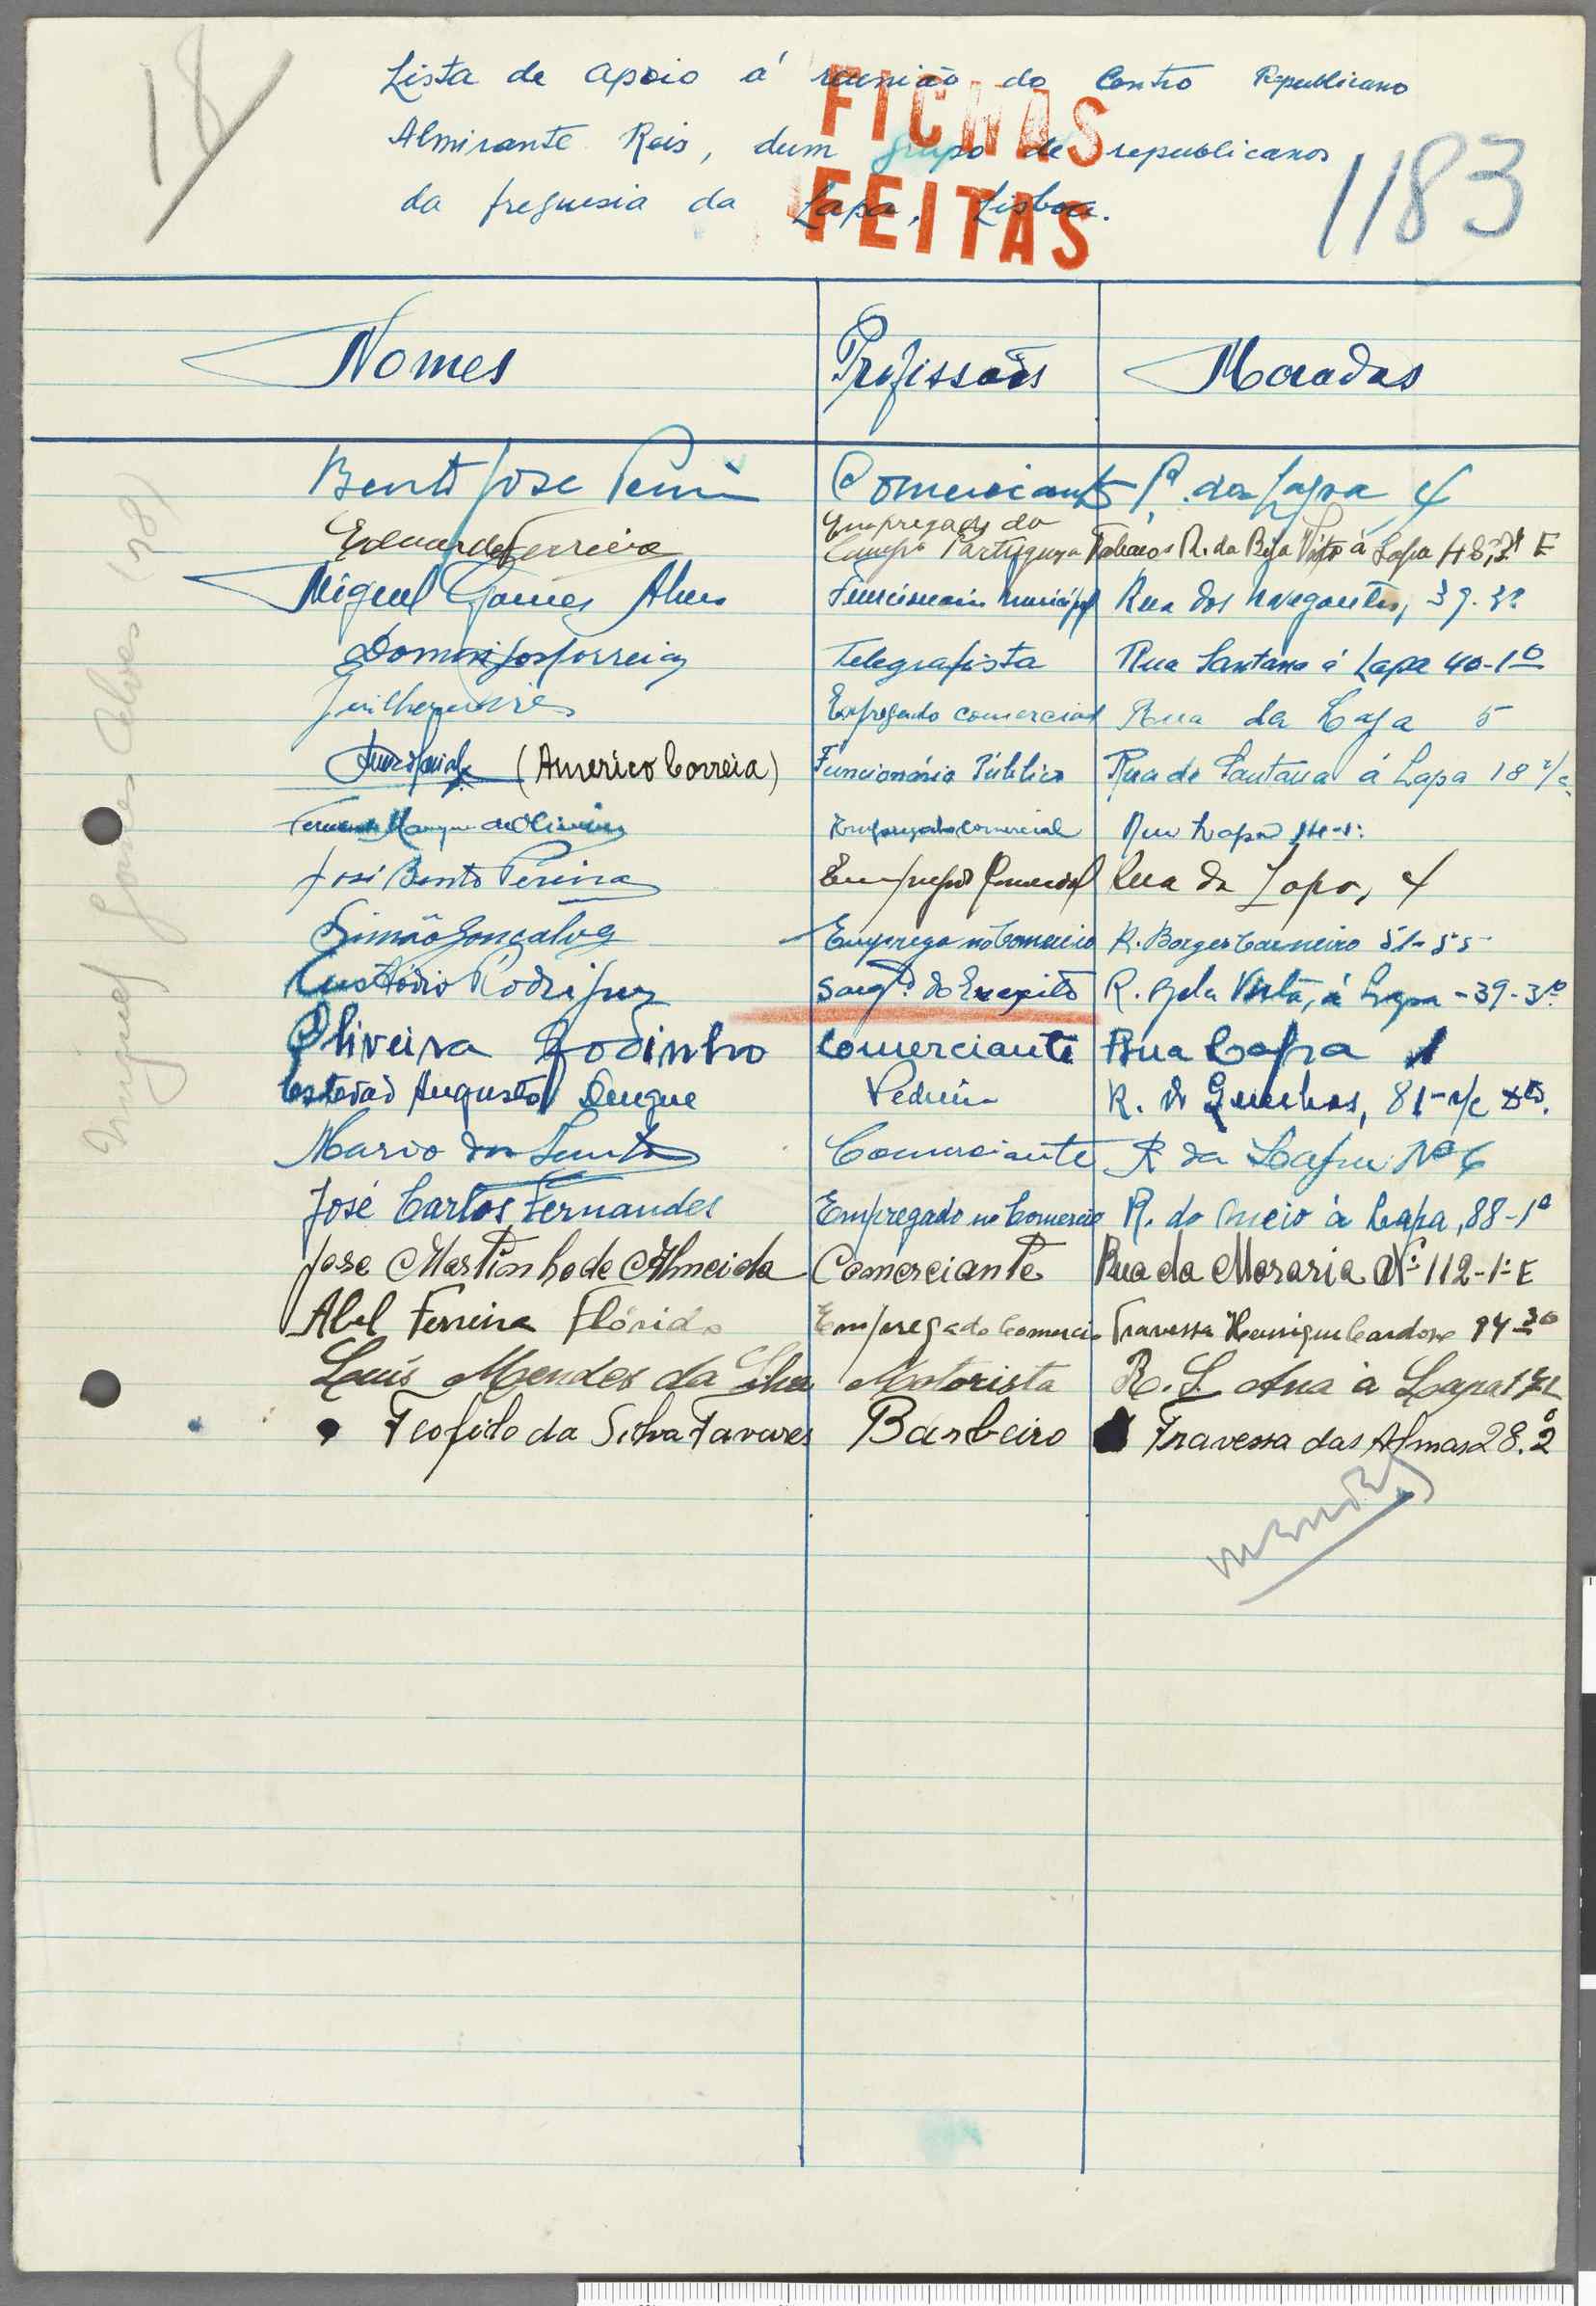 18
Lista de apoio á reunião do Centro Republicano
Almirante Reis, dum grupo de republicanos
da freguesia da Lapa, Lisboa.
FICHAS
FEITAS
1183
Nomes Profissões Moradas
Bento José Comerciante R. da Lapa, 4
Eduardo Ferreira Empregado da Compª Portuguesa Tabacos R. da Bela Vista á Lapa
Miguel Gomes Alves Funcionario Municipal Rua dos Navegantes, 39-3º
José Correia Telegrafista Rua Santana á Lapa 40-1º
Guilherme Empregado comercial Rua da Lapa 5
(Americo Correia) Funcionário Público Rua de Santana á Lapa 18
Marques de Oliveira Empregado Comercial Rua Lapa
José Bento Pereira Rua da Lapa, 4
Simão Gonçalves Emprego no Comercio R. Borges Carneiro 51-55
Custódio Rodrigues Sargtº do Exercito R. Bela Vista, á Lapa - 39-3º
Oliveira Godinho Comerciante Rua Lapa 1
Estevão Augusto Duque Pedreiro R. 81-r/c dto.
Mario dos Santos Comerciante R da Lapa Nº 6
José Carlos Fernandes Empregado no Comercio R. do Meio á Lapa, 88-1º
Jose Martinho de Almeida Comerciante Rua da Moraria Nº 112-1º E
Abel Ferreira Flórido Empregado Comercio Travessa Henrique Cardoso 94-3º
Luís Mendes da Silva Motorista R. S. Ana á Lapa
Teofilo da Silva Tavares Barbeiro Travessa das Almas 28.2º
Miguel Gomes Alves